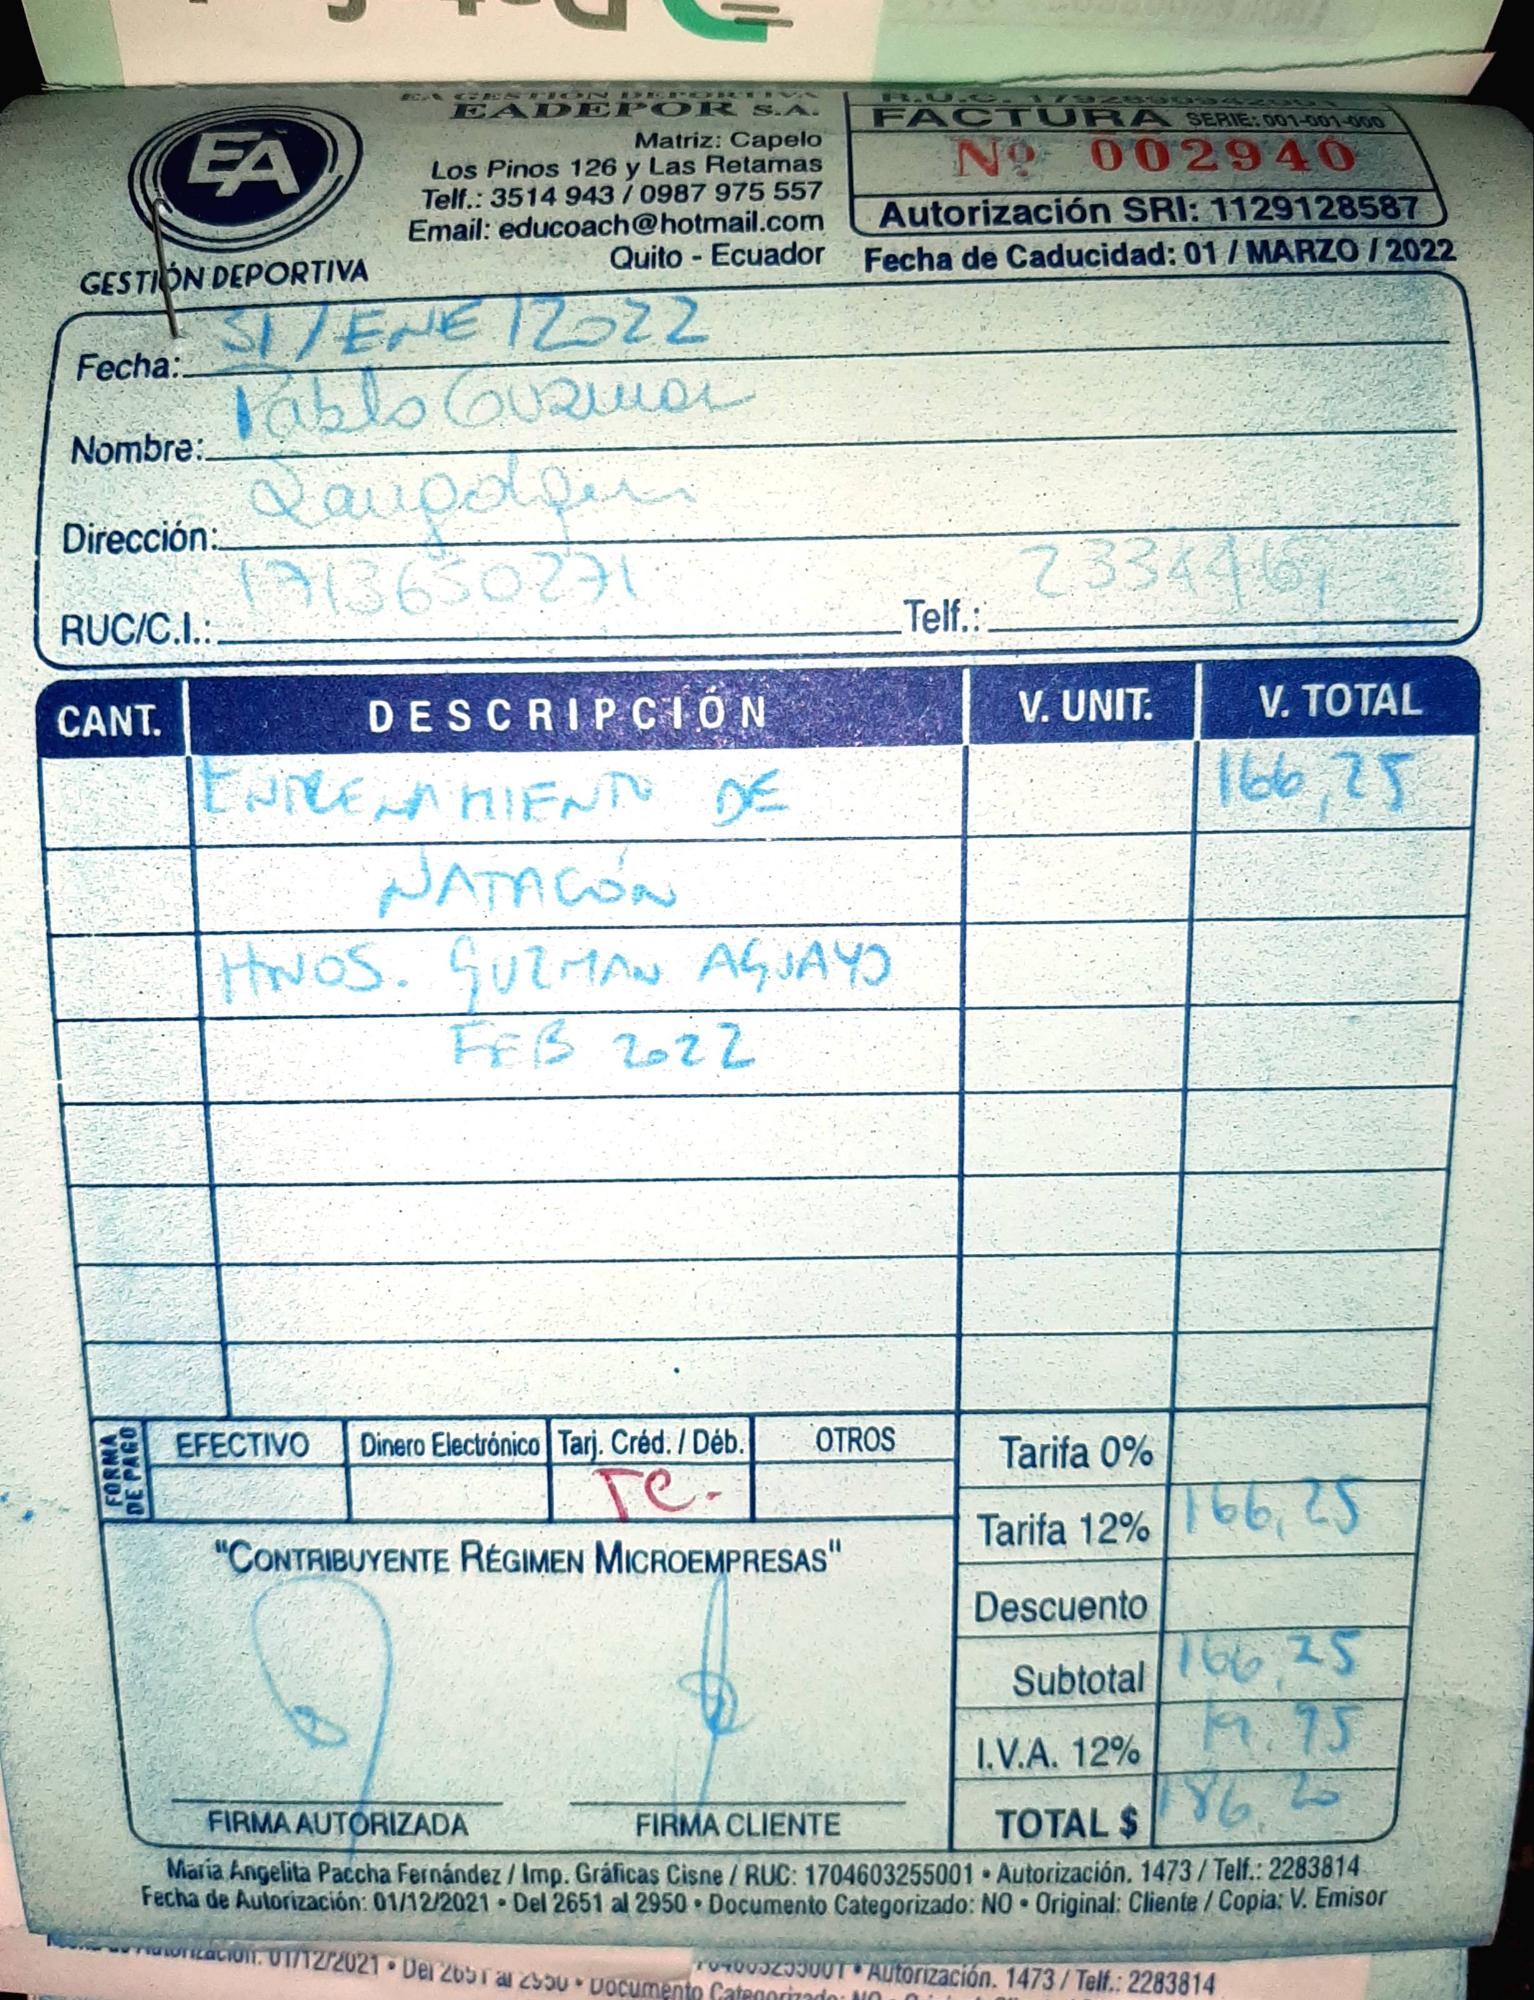 EA GESTIÓN DEPORTIVA
EADEPOR S.A.
Matriz: Capelo
Los Pinos 126 y Las Retamas
Telf.: 3514 943 / 0987 975 557
Email: educoach@hotmail.com
Quito - Ecuador
EA
GESTIÓN DEPORTIVA
R.U.C.
FACTURA SERIE: 001-001-000
Nº 002940
Autorización SRI: 1129128587
Fecha de Caducidad: 01 / MARZO / 2022
Fecha: 31/ENE/2022
Nombre: Pablo Guzman
Dirección:
RUC/C.I.: 1713650271 Telf.:
CANT. DESCRIPCIÓN V. UNIT. V. TOTAL
ENTRENAMIENTO DE 166,25
NATACIÓN
HNOS. GUZMAN AGUAYO
FEB 2022
FORMA DE PAGO
EFECTIVO Dinero Electrónico Tarj. Créd. / Déb. OTROS
TC.
Tarifa 0%
Tarifa 12% 166,25
Descuento
Subtotal 166,25
I.V.A. 12% 19.95
TOTAL $ 186,20
"CONTRIBUYENTE RÉGIMEN MICROEMPRESAS"
FIRMA AUTORIZADA FIRMA CLIENTE
María Angelita Paccha Fernández / Imp. Gráficas Cisne / RUC: 1704603255001 • Autorización. 1473 / Telf.: 2283814
Fecha de Autorización: 01/12/2021 • Del 2651 al 2950 • Documento Categorizado: NO • Original: Cliente / Copia: V. Emisor
Autorización: 01/12/2021 • Del 2651 al 2950 • Documento Categorizado: NO
• Autorización. 1473 / Telf.: 2283814